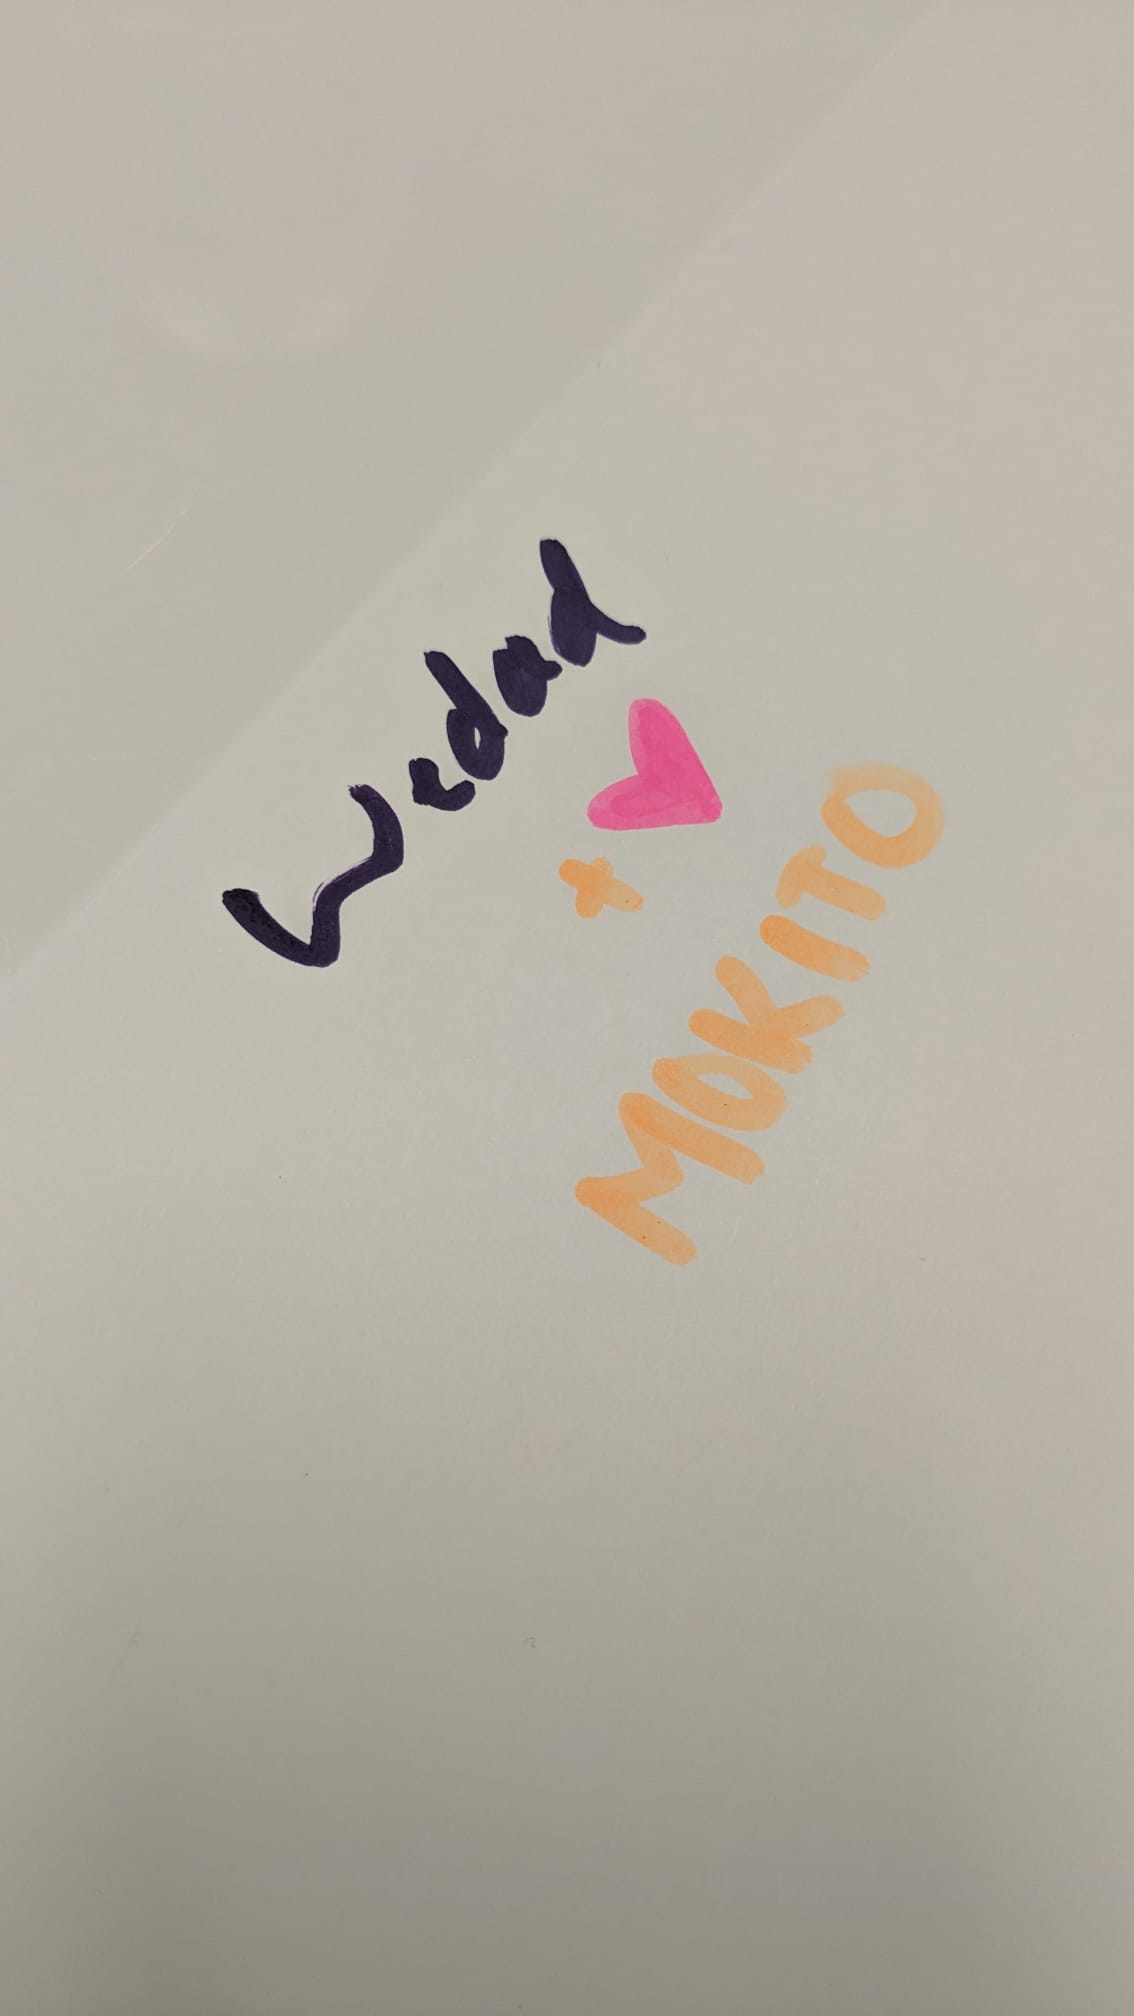 Wedad
+
MOKITO